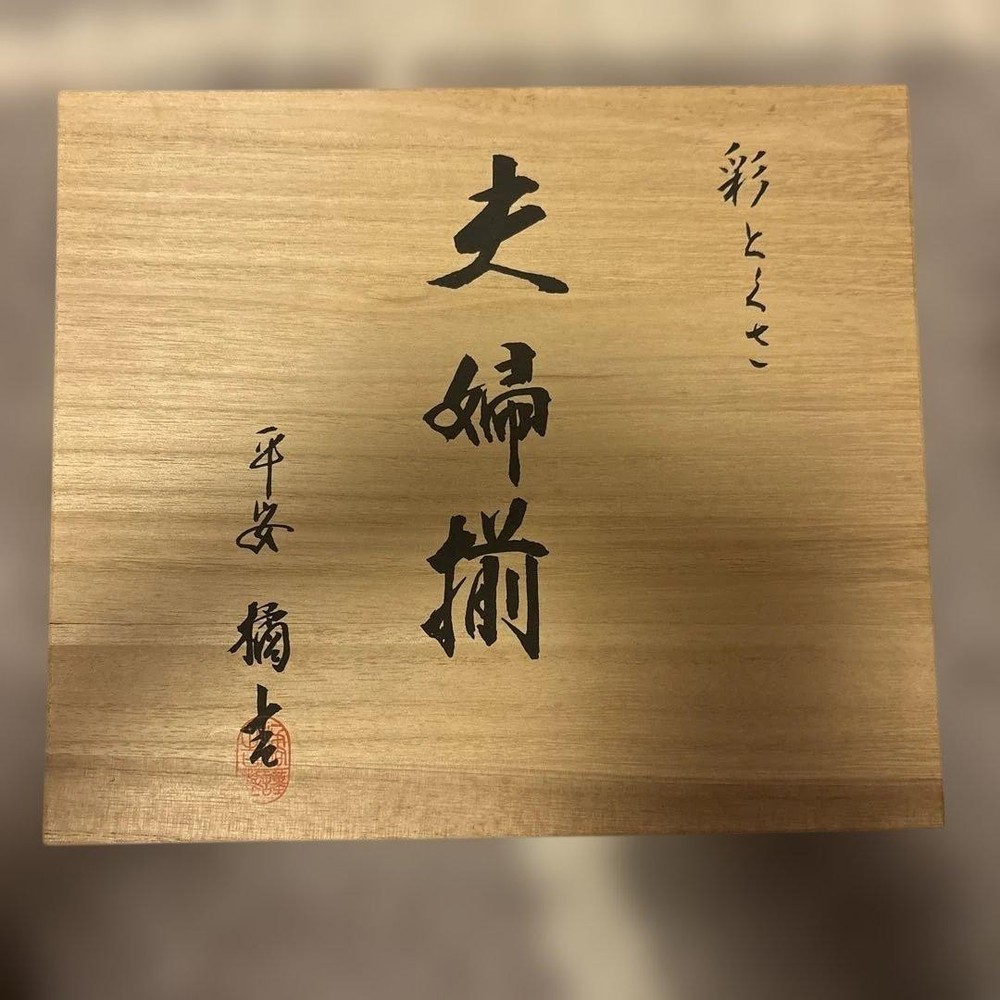 彩とくさ
夫婦揃
平安 橘吉